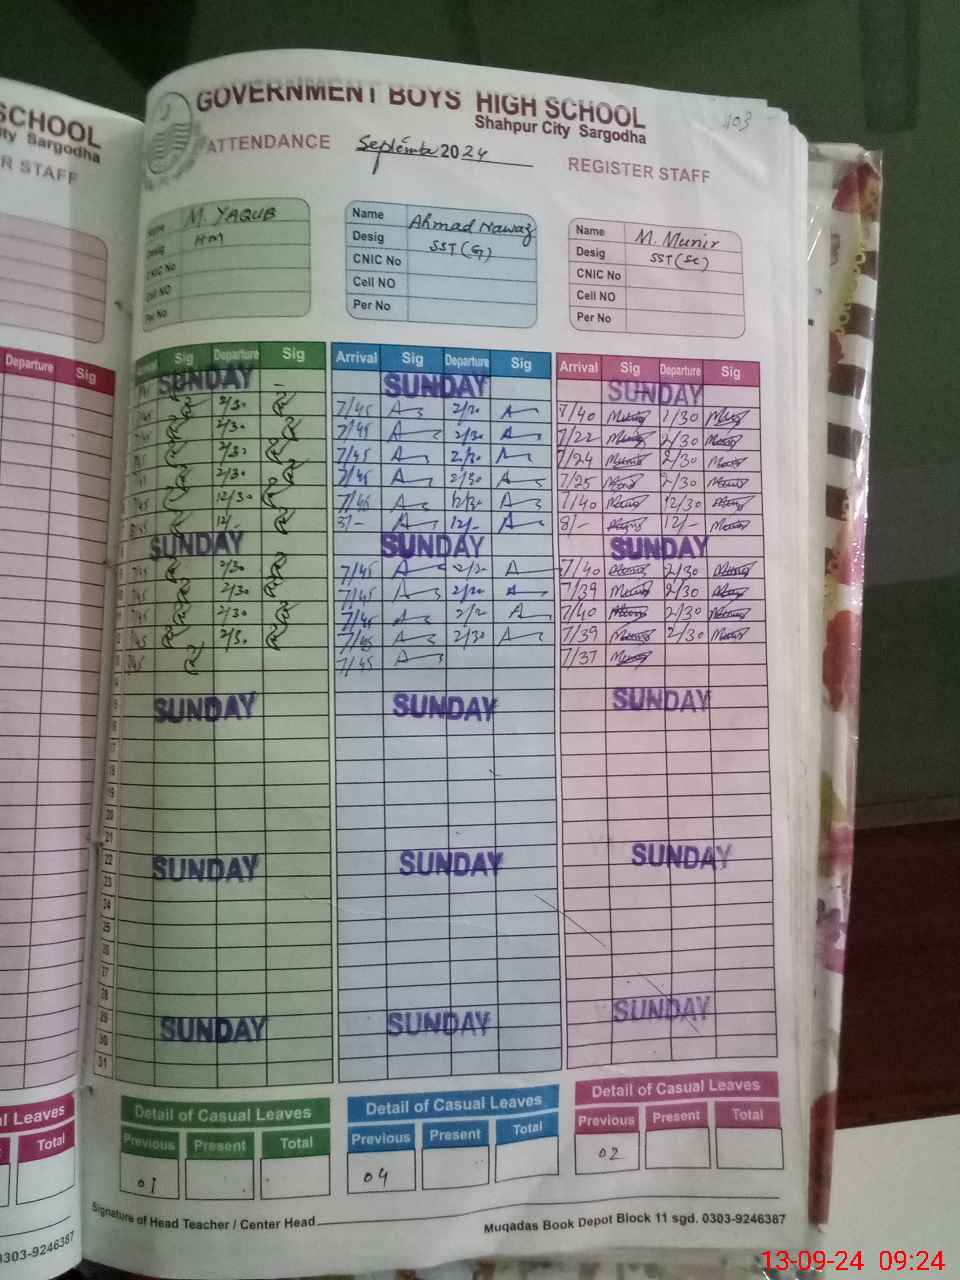 SCHOOL
ity Sargodha
R STAFF
Departure Sig
GOVERNMENT BOYS HIGH SCHOOL
Shahpur City Sargodha
103
ATTENDANCE September 2024 REGISTER STAFF
Name M. YAQUB
Desig HM
CNIC No
Cell NO
Per No
Name Ahmad Nawaz
Desig SST(G)
CNIC No
Cell NO
Per No
Name M. Munir
Desig SST(Sc)
CNIC No
Cell NO
Per No
Sig Departure Sig Arrival Sig Departure Sig Arrival Sig Departure Sig
SUNDAY SUNDAY SUNDAY
2/30 7/45 2/30 7/40 2/30
2/30 7/45 2/30 7/22 2/30
2/30 7/45 2/30 7/24 2/30
2/30 7/45 2/30 7/25 2/30
7/45 12/30 7/45 12/30 7/40 12/30
12/- 12/- 8/- 12/-
SUNDAY SUNDAY SUNDAY
7/45 2/30 7/45 2/30 7/40 2/30
7/45 2/30 7/45 2/30 7/39 2/30
7/45 2/30 7/45 2/30 7/40 2/30
7/45 2/30 7/45 2/30 7/39 2/30
7/45 7/45 7/37
SUNDAY SUNDAY SUNDAY
16
17
18
19
20
21
22 SUNDAY SUNDAY SUNDAY
23
24
25
26
27
28
29 SUNDAY SUNDAY SUNDAY
30
31
Detail of Casual Leaves
Previous Present Total
01
Detail of Casual Leaves
Previous Present Total
04
Detail of Casual Leaves
Previous Present Total
02
al Leaves
Total
Signature of Head Teacher / Center Head
Muqadas Book Depot Block 11 sgd. 0303-9246387
0303-9246387
13-09-24 09:24